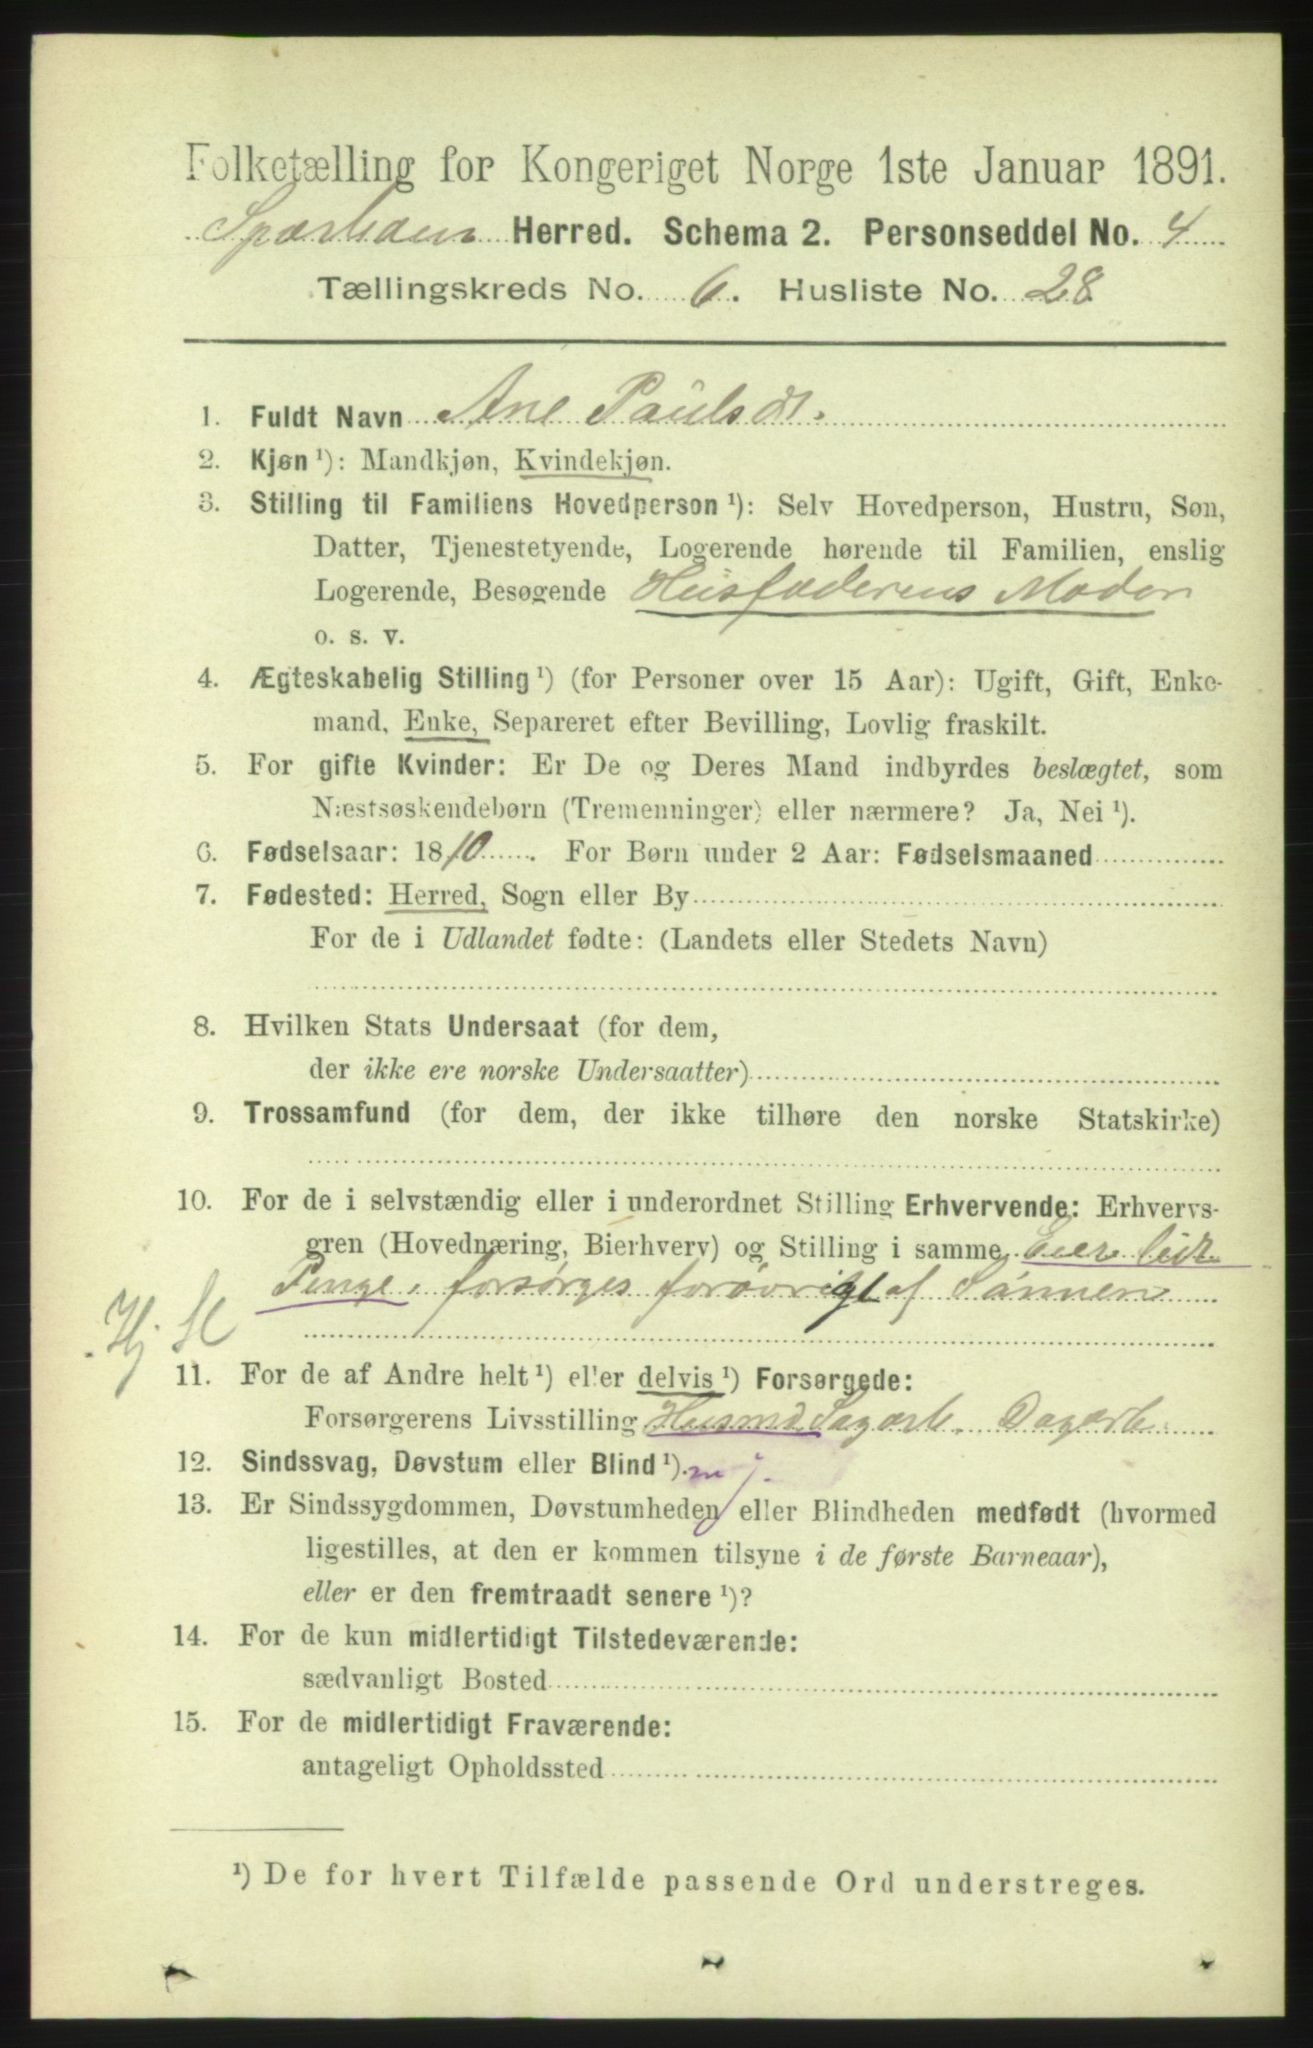 Folketælling for Kongeriget Norge 1ste Januar 1891.
Sparboen Herred. Schema 2. Personseddel No. 4
Tællingskreds No. 6. Husliste No. 28
1. Fuldt Navn Ane Paulsdt.
2. Kjøn ¹): Mandkjøn, Kvindekjøn.
3. Stilling til Familiens Hovedperson ¹): Selv Hovedperson, Hustru, Søn,
Datter, Tjenestetyende, Logerende hørende til Familien, enslig
Logerende, Besøgende Husfaderens Moder
o. s. v.
4. Ægteskabelig Stilling ¹) (for Personer over 15 Aar): Ugift, Gift, Enke-
mand, Enke, Separeret efter Bevilling, Lovlig fraskilt.
5. For gifte Kvinder: Er De og Deres Mand indbyrdes beslægtet, som
Næstsøskendebørn (Tremenninger) eller nærmere? Ja, Nei ¹).
6. Fødselsaar: 1810. For Børn under 2 Aar: Fødselsmaaned
7. Fødested: Herred, Sogn eller By
For de i Udlandet fødte: (Landets eller Stedets Navn)
8. Hvilken Stats Undersaat (for dem,
der ikke ere norske Undersaatter)
9. Trossamfund (for dem, der ikke tilhøre den norske Statskirke)
10. For de i selvstændig eller i underordnet Stilling Erhvervende: Erhvervs-
gren (Hovednæring, Bierhverv) og Stilling i samme Eier lidt
Penge, forsørges forøvrigt af Sønnen
Hj
11. For de af Andre helt ¹) eller delvis ¹) Forsørgede:
Forsørgerens Livsstilling Husmd. Sagarb. Dagarb.
12. Sindssvag, Døvstum eller Blind ¹).
13. Er Sindssygdommen, Døvstumheden eller Blindheden medfødt (hvormed
ligestilles, at den er kommen tilsyne i de første Barneaar),
eller er den fremtraadt senere ¹)?
14. For de kun midlertidigt Tilstedeværende:
sædvanligt Bosted
15. For de midlertidigt Fraværende:
antageligt Opholdssted
¹) De for hvert Tilfælde passende Ord understreges.